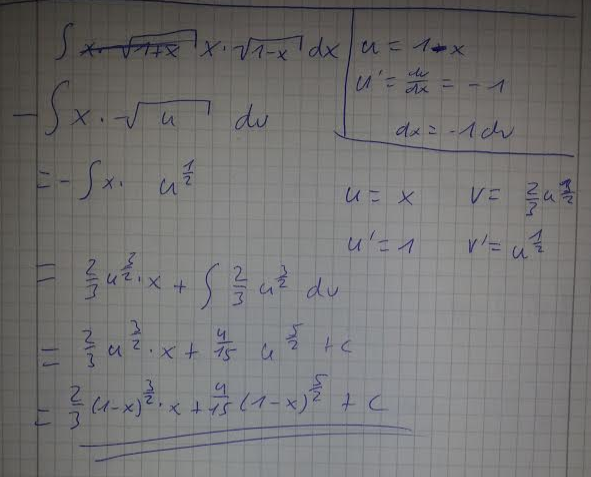 ∫ x·√(1+x) x·√(1-x) dx
u = 1-x
u' = du/dx = -1
dx = -1 du
-∫ x·√u du
= -∫ x· u^(1/2)
u = x v = 2/3 u^(3/2)
u' = 1 v' = u^(1/2)
= 2/3 u^(3/2)·x + ∫ 2/3 u^(3/2) du
= 2/3 u^(3/2)·x + 4/15 u^(5/2) + c
= 2/3 (1-x)^(3/2)·x + 4/15 (1-x)^(5/2) + c